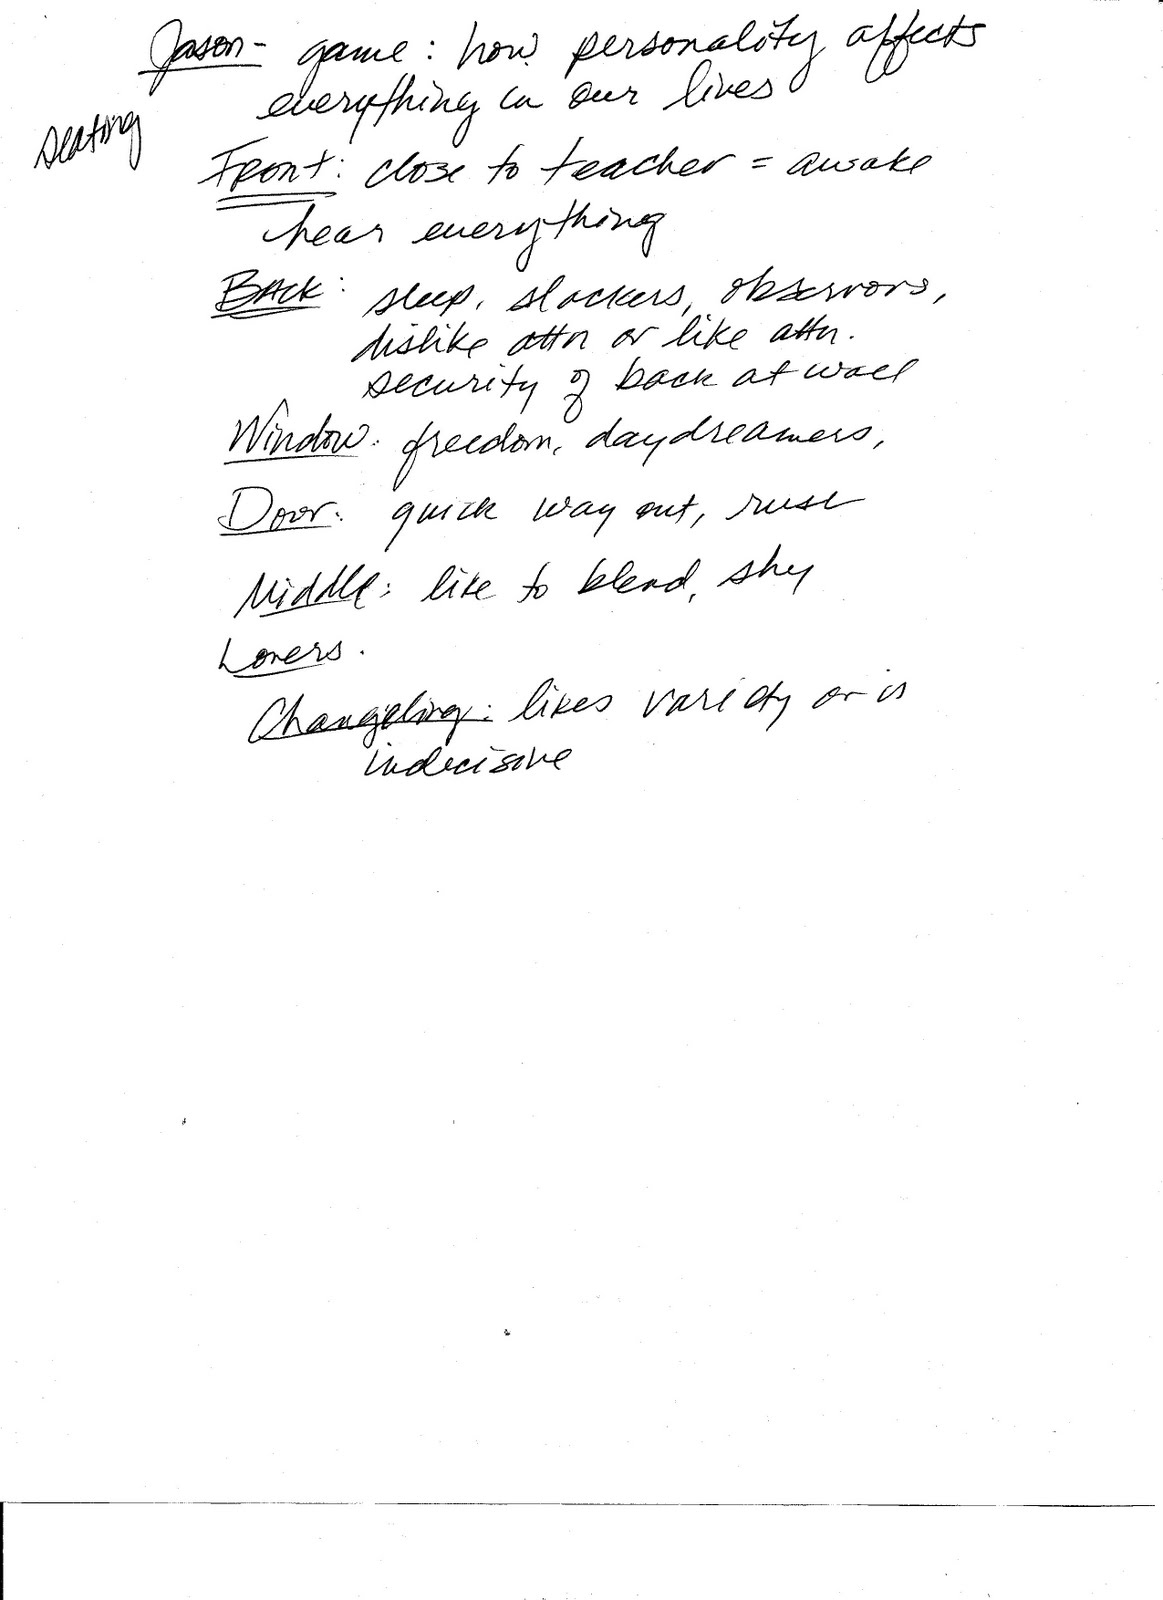 Jason - game : how personality affects
everything in our lives
Seating
Front : close to teacher = awake
hear everything
Back : sleep, slackers, observors,
dislike attn or like attn.
security of back at wall
Window : freedom, daydreamers,
Door : quick way out,
Middle : like to blend, shy
Loners.
Changeling : likes variety or is
indecisive